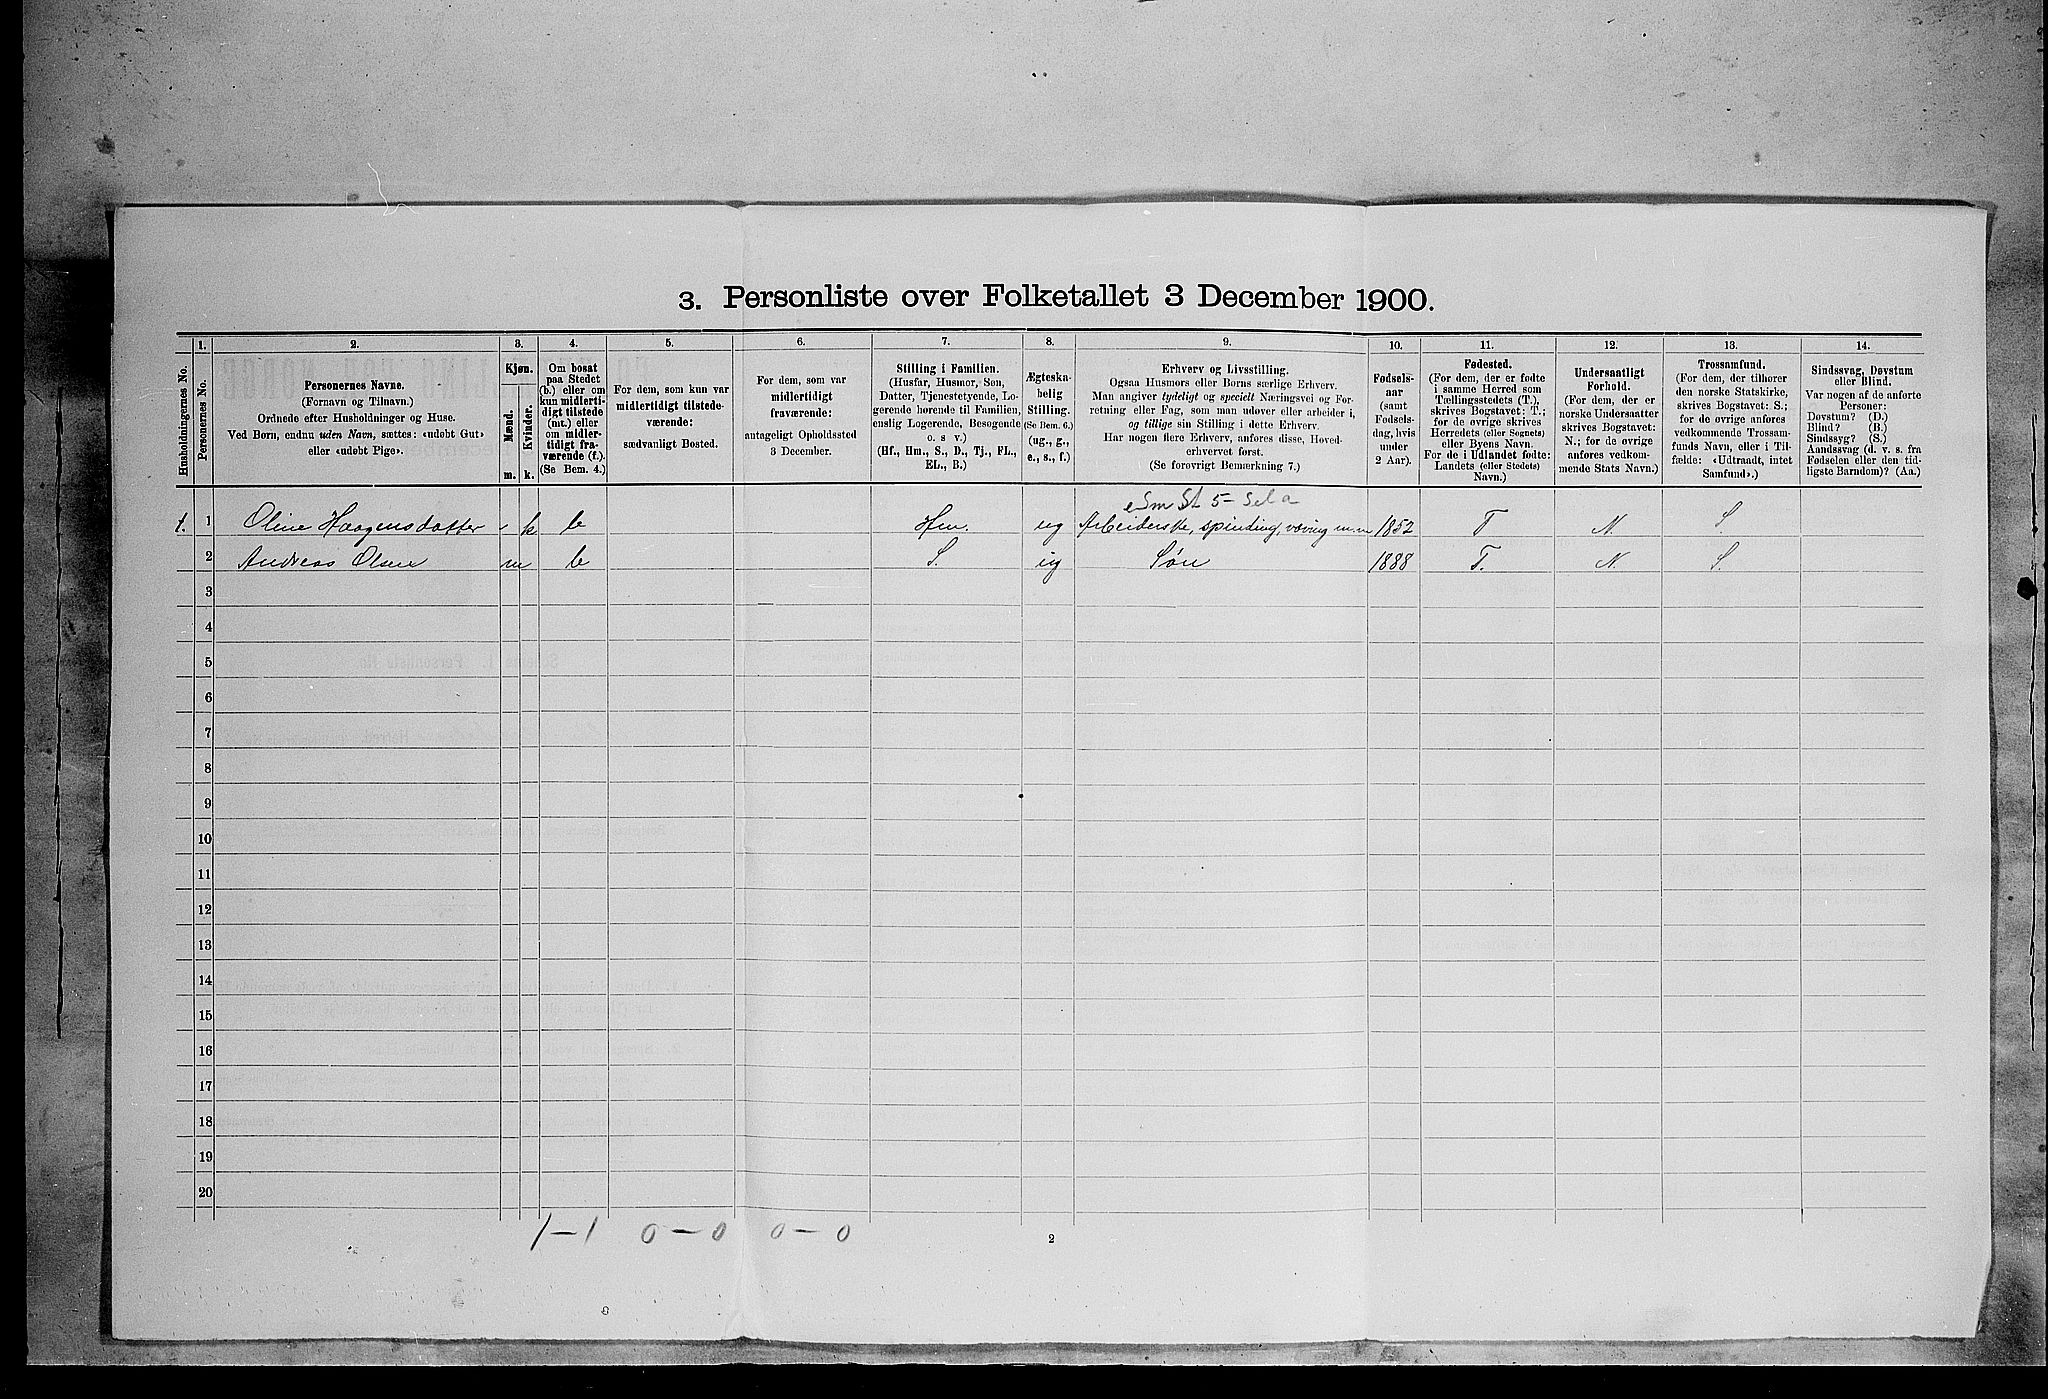 3. Personliste over Folketallet 3 December 1900.
1. 2. 3. 4. 5. 6. 7. 8. 9. 10. 11. 12. 13. 14.
Husholdningernes No.
Personernes No.
Personernes Navne.
(Fornavn og Tilnavn.)
Ordnede efter Husholdninger og Huse.
Ved Børn, endnu uden Navn, sættes: «udøbt Gut»
eller «udøbt Pige».
Kjøn.
Mænd.
Kvinder.
m. k.
Om bosat
paa Stedet
(b.) eller om
kun midlerti-
digt tilstede
(mt.) eller
om midler-
tidigt fra-
værende (f.).
(Se Bem. 4.)
For dem, som kun var
midlertidigt tilstede-
værende:
sædvanligt Bosted.
For dem, som var
midlertidigt
fraværende:
antageligt Opholdssted
3 December.
Stilling i Familien.
(Husfar, Husmor, Søn,
Datter, Tjenestetyende, Lo-
gerende hørende til Familien,
enslig Logerende, Besøgende
o. s v.)
(Hf., Hm., S., D., Tj., FL.,
EL., B.)
Ægteska-
belig
Stilling.
(Se Bem. 6.)
(ug., g.,
e., s., f.)
Erhverv og Livsstilling.
Ogsaa Husmors eller Børns særlige Erhverv.
Man angiver tydeligt og specielt Næringsvei og For-
retning eller Fag, som man udøver eller arbeider i,
og tillige sin Stilling i dette Erhverv.
Har nogen flere Erhverv, anføres disse, Hoved-
erhvervet først.
(Se forøvrigt Bemerkning 7.)
Fødsels-
aar
(samt
Fødsels-
dag, hvis
under
2 Aar).
Fødested.
(For dem, der er fødte
i samme Herred som
Tællingsstedets (T.),
skrives Bogstavet: T.;
for de øvrige skrives
Herredets (eller Sognets)
eller Byens Navn.
For de i Udlandet fødte:
Landets (eller Stedets)
Navn.)
Undersaatligt
Forhold.
(For dem, der er
norske Undersaatter
skrives Bogstavet:
N.; for de øvrige
anføres vedkom-
mende Stats Navn.)
Trossamfund.
(For dem, der tilhører
den norske Statskirke,
skrives Bogstavet: S.;
for de øvrige anføres
vedkommende Trossam-
funds Navn, eller i Til-
fælde: «Udtraadt, intet
Samfund».)
Sindssvag, Døvstum
eller Blind.
Var nogen af de anførte
Personer:
Døvstum? (D.)
Blind? (B.)
Sindssyg? (S.)
Aandssvag (d. v. s. fra
Fødselen eller den tid-
ligste Barndom)? (Aa.)
Sm St 5-
1. 1 Oline Haagensdatter - k b Hm. ug Arbeiderske, spinding, væving m.m 1852 T N. S.
2 Andreas Olsen m b S. ug Søn 1888 T. N. S.
3
4
5
6
7
8
9
10
11
12
13
14
15
16
17
18
19
20
1-1 0-0 0-0
2